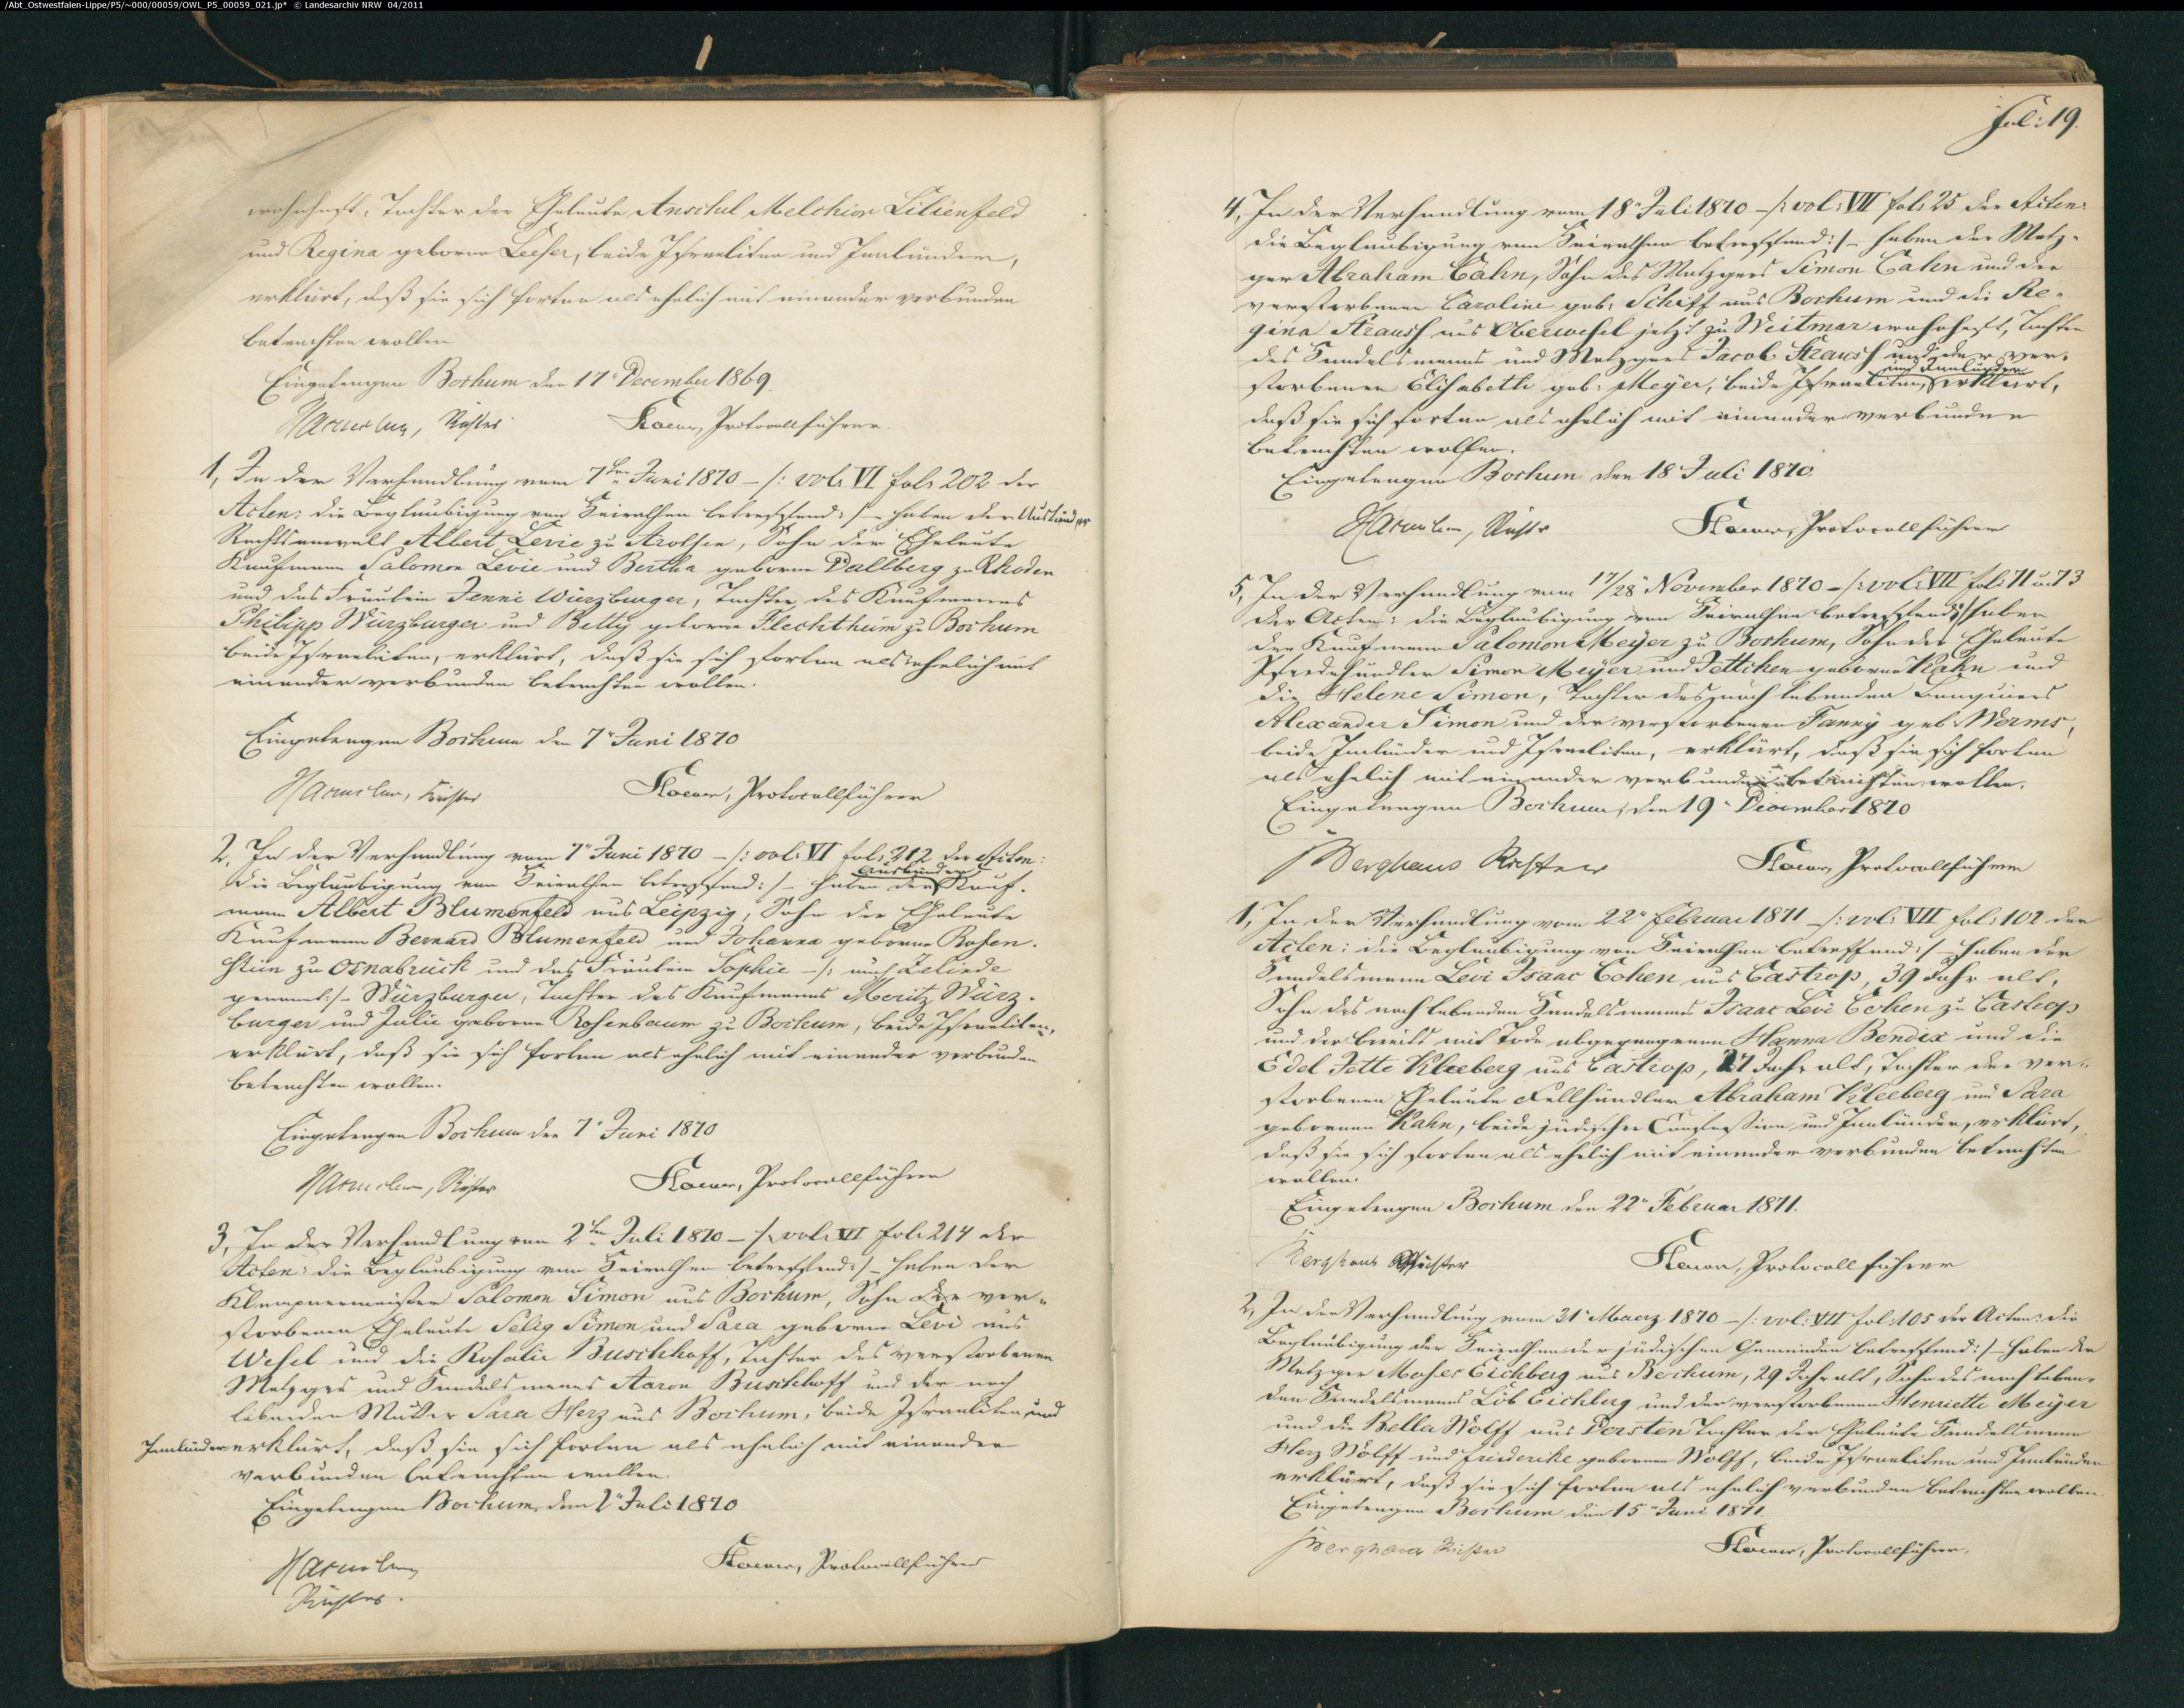 /Abt_Ostwestfalen-Lippe/P5/~000/00059/OWL_P5_00059_021.jp* © Landesarchiv NRW 04/2011
wohnhaft, Tochter der Eheleute Anschel Melchior Lilienfeld
und Regina geborne Leeser, beide Israeliten und Innländer,
erklärt, daß sie sich fortan als ehelich mit einander verbunden
betrachten wollen
Eingetragen Bochum den 17 December 1869.
Richter Protocollführer.
1, In der Verhandlung vom 7ten Juni 1870 -/: vol: VI fol: 202 der
Acten: die Beglaubigung von Heirathen betreffend :/- haben der Ausländer
Rechtsanwalt Albert Levie zu Arolsen, Sohn der Eheleute
Kaufmann Salomon Levie und Bertha geborne Dallberg zu Rhoden
und das Fräulein Jenni Würzburger, Tochter des Kaufmanns
Philipp Würzburger und Betty geborne Flechtheim zu Bochum
beide Israeliten, erklärt, daß sie sich fortan als ehelich mit
einander verbunden betrachten wollen.
Eingetragen Bochum den 7 Juni 1870
Richter Protocollführer
2, In der Verhandlung vom 7 Juni 1870 -/: vol: VI fol: 212 der Acten:
Ausländer
die Beglaubigung von Heirathen betreffend :/- haben der Kauf-
mann Albert Blumenfeld aus Leipzig, Sohn der Eheleute
Kaufmann Bernard Blumenfeld und Johanna geborne Rosen-
stein zu Osnabrück und das Fräulein Sophie -/: auch Zelinde
genannt :/- Würzburger, Tochter des Kaufmanns Moritz Würz-
burger und Julie geborne Rosenbaum zu Bochum, beide Israeliten,
erklärt, daß sie sich fortan als ehelich mit einander verbunden
betrachten wollen.
Eingetragen Bochum den 7 Juni 1870
Richter Protocollführer
3, In der Verhandlung vom 2ten Juli 1870 -/: vol: VI fol: 214 der
Acten: die Beglaubigung von Heirathen betreffend :/- haben der
Klempnermeister Salomon Simon aus Bochum, Sohn der ver-
storbenen Eheleute Selig Simon und Sara geborne Levi aus
Wesel und die Rosalie Buschhoff, Tochter des verstorbenen
Metzgers und Handelsmanns Aaron Buschhoff und der noch
lebenden Mutter Sara Herz aus Bochum, beide Israeliten und
Innländer erklärt, daß sie sich fortan als ehelich mit einander
verbunden betrachten wollen.
Eingetragen Bochum, den 2 Juli 1870
Protocollführer
Richter.
Fol: 19.
4, In der Verhandlung vom 18 Juli 1870 -/: vol: VII fol: 25 der Acten:
die Beglaubigung von Heirathen betreffend :/- haben der Metz-
ger Abraham Cahn, Sohn des Metzgers Simon Cahn und der
verstorbenen Caroline geb: Schiff aus Bochum und die Re-
gina Strauss aus Oberwesel jetzt zu Weitmar wohnhaft, Tochter
des Handelsmanns und Metzgers Jacob Strauss und der ver-
und Innländer
storbenen Elisabeth geb: Meyer, beide Israeliten, erklärt,
daß sie sich fortan als ehelich mit einander verbunden
betrachten wollen.
Eingetragen Bochum den 18 Juli 1870.
Richter Protocollführer
5, In der Verhandlung vom 17/28 November 1870 -/: vol: VII fol: 71 u. 73
der Acten: die Beglaubigung von Heirathen betreffend :/ haben
der Kaufmann Salomon Meyer zu Bochum, Sohn der Eheleute
Pferdehändler Simon Meyer und Jettchen geborne Kahn und
die Helene Simon, Tochter des noch lebenden Banquiers
Alexander Simon und der verstorbenen Fanny geb: Worms,
beide Innländer und Israeliten, erklärt, daß sie sich fortan
als ehelich mit einander verbunden betrachten wollen.
Eingetragen Bochum, den 19 December 1870
Berghaus Richter Protocollführer
1, In der Verhandlung vom 22 Februar 1871 -/: vol: VII fol: 102 der
Acten: die Beglaubigung von Heirathen betreffend :/- haben der
Handelsmann Levi Isaac Cohen aus Castrop, 39 Jahr alt,
Sohn des noch lebenden Handelsmanns Isaac Levi Cohen zu Castrop
und der bereits mit Tode abgegangenen Hanna Bendix und die
Edel Jette Kleeberg aus Castrop, 27 Jahr alt, Tochter der ver-
storbenen Eheleute Fellhändler Abraham Kleeberg und Sara
gebornen Kahn, beide jüdischer Confession und Innländer, erklärt,
daß sie sich fortan als ehelich mit einander verbunden betrachten
wollen.
Eingetragen Bochum den 22 Februar 1871.
Berghaus Richter Protocollführer
2, In der Verhandlung vom 21 Maerz 1870 -/: vol: VII fol: 105 der Acten: die
Beglaubigung der Heirathen der jüdischen Gemeinden betreffend :/- haben der
Metzger Moses Eichberg aus Bochum, 29 Jahr alt, Sohn des noch leben-
den Handelsmanns Löb Eichberg und der verstorbenen Henriette Meyer
und die Bella Wolff aus Dorsten Tochter der Eheleute Handelsmann
Herz Wolff und Friederike gebornen Wolff, beide Israeliten und Innländer
erklärt, daß sie sich fortan als ehelich verbunden betrachten wollen.
Eingetragen Bochum den 15 Juni 1871.
Berghaus Richter Protocollführer.